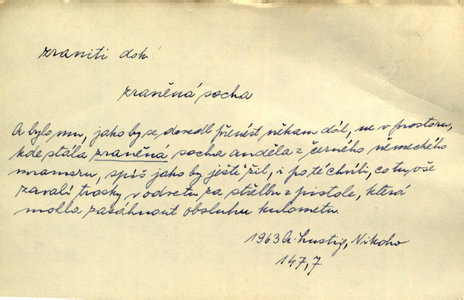 zraniti dok.
zraněná socha
A bylo mu, jako by se dovedl přenést někam dál, ne v prostoru,
kde stála zraněná socha anděla z černého německého
mramoru, spíš jako by ještě žil, i po té chvíli, co tu vše
zavalí trosky v odvetu za střelbu z pistole, která
mohla zasáhnout obsluhu kulometu.
1963 A. Lustig, Nikoho
147,7